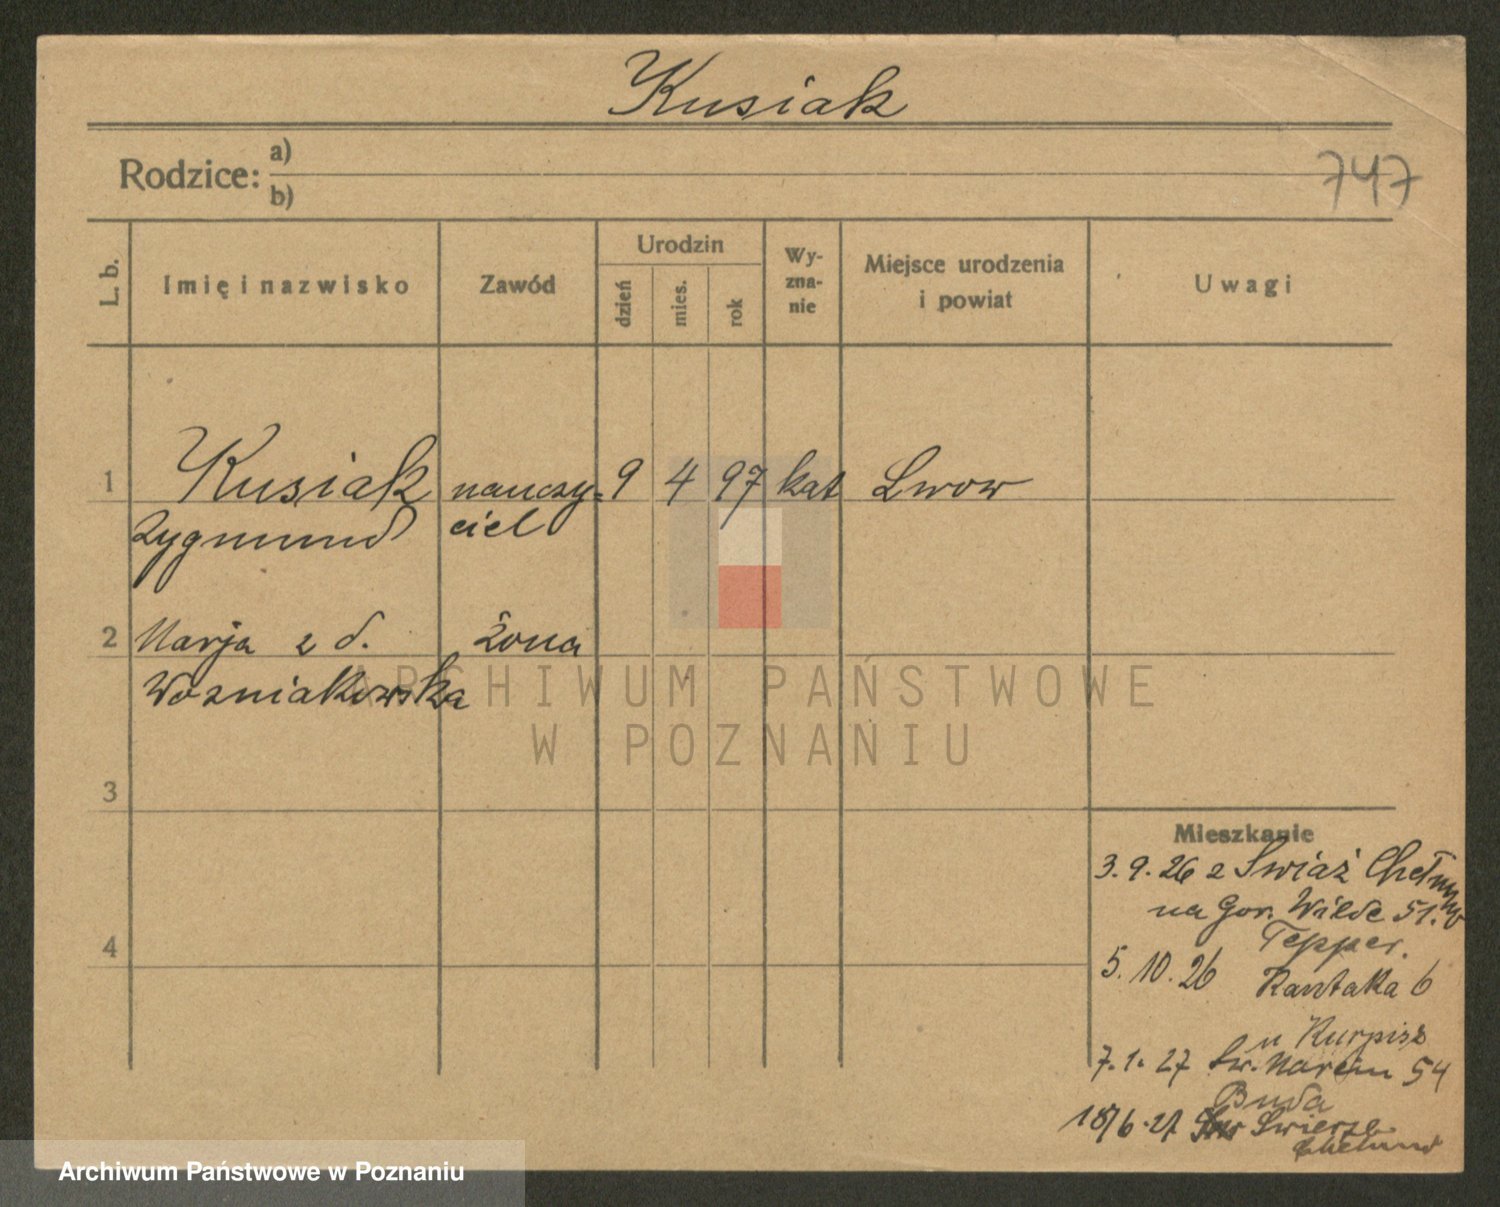 Kusiak
Rodzice: a)
b)
747
L. b.
Imię i nazwisko
Zawód
Urodzin
dzień
mies.
rok
Wy-
zna-
nie
Miejsce urodzenia
i powiat
Uwagi
1
Kusiak
Zygmund
nauczy=
ciel
9
4
97
kat
Lwow
2
Marja z d.
Wozniakowska
żona
3
4
Mieszkanie
3.9.26 z Swiaż Chełmno
na Gor. Wilde 51.
Tepper.
5.10.26 Rantaka 6
u Kurpisz
7.1.27 Sw. Marcin 54
Buda
18/6.27
ARCHIWUM PAŃSTWOWE
W POZNANIU
Archiwum Państwowe w Poznaniu